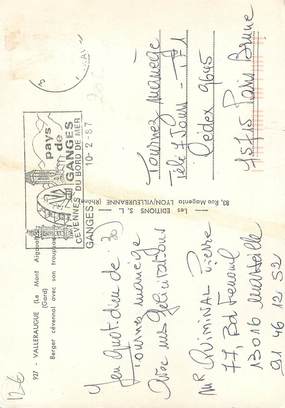 927 - VALLERAUGUE (Le Mont Aigoual)
(Gard)
Berger cévenol avec son troupeau
Jeu quotidien de 30
Tournez manège
Avec mes félicitations
Mr QUIMINAL Pierre
77, Bd
13016 Marseille
91 46 12 52
pays
de
GANGES
CÉVENNES DU BORD DE MER
10-2-87
GANGES
Les EDITIONS S.L. 
83, Rue Magenta LYON/VILLEURBANNE (Rhône)
Tournez manège
Télé 7 Jours - TF1
Cedex 9645
75715 Paris Brune
126